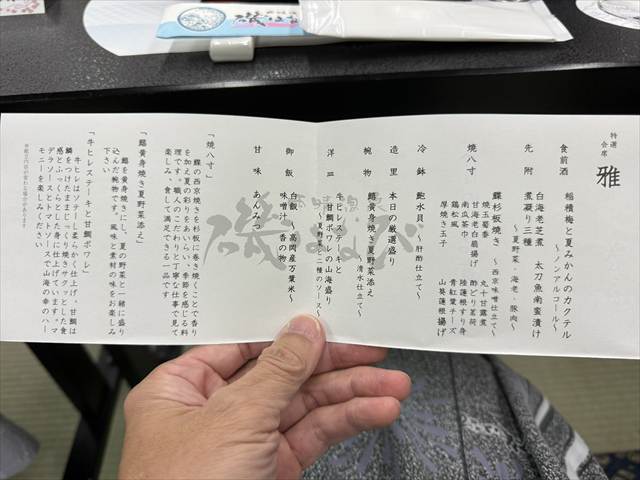 特選
会席
雅
食前酒　稲積梅と夏みかんのカクテル
～ノンアルコール～
先附　白海老芝煮　太刀魚南蛮漬け
煮凝り三種
～夏野菜・海老・豚肉～
焼八寸　鰈杉板焼き　～西京味噌仕立て～
焼玉蜀黍　丸十甘露煮
甘海老白扇揚げ　酢どり茗荷
南瓜茶巾　陸蓮根すり身
鶏松風　青紅葉チーズ
厚焼き玉子　山葵蓮根揚げ
冷鉢　鮑水貝　～肝酢仕立て～
造里　本日の厳選盛り
椀物　鱚黄身焼き夏野菜添え
～清水仕立て～
洋皿　牛ヒレステーキと
甘鯛ポワレの山海盛り
～夏野菜と二種のソース～
御飯　白飯　～高岡産万葉米～
味噌汁　香の物
甘味　あんみつ
「焼八寸」
鰈の西京焼きを杉板に巻き焼くことで香り
を加え夏の彩りをあしらい、季節を感じる料
理です。職人のこだわりと丁寧な仕事で見て
楽しみ、食して満足できる一品です。
「鱚黄身焼き夏野菜添え」
鱚を黄身焼きにし、夏の野菜と一緒に盛り
込んだ椀物です。風味と素材の味をお楽しみ
下さい
「牛ヒレステーキと甘鯛ポワレ」
牛ヒレはソテーし柔らかく仕上げ、甘鯛は
鱗をつけたままじっくり焼きサクッとした食
感とふっくらとした身に仕上げています。マ
デラソースとトマトソースで山海の幸のハー
モニーを楽しみください。